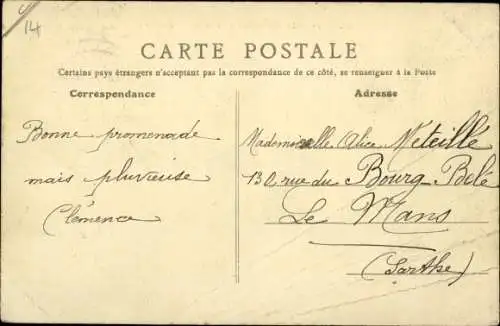 14
CARTE POSTALE
Certains pays étrangers n'acceptant pas la correspondance de ce côté, se renseigner à la Poste
Correspondance
Adresse
Bonne promenade
mais pluvieuse
Clémence
Mademoiselle Alice Méteillé
130 rue du Bourg-Belé
Le Mans
(Sarthe)